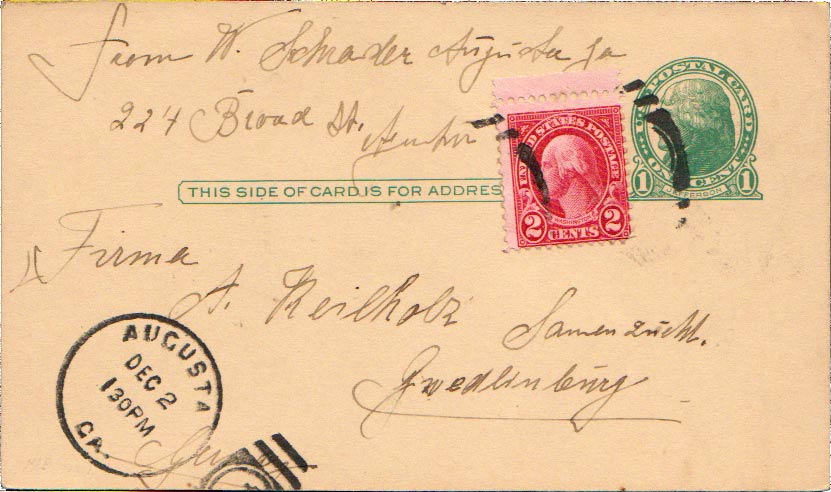 From W. Schrader Augusta Ga
224 Broad St.
U.S. POSTAL CARD
ONE CENT
1 JEFFERSON 1
UNITED STATES POSTAGE
WASHINGTON
2 CENTS 2
THIS SIDE OF CARD IS FOR ADDRES
Firma
A. Keilholz Samenzucht.
Qwedlinburg
AUGUSTA
DEC 2
130PM
GA.